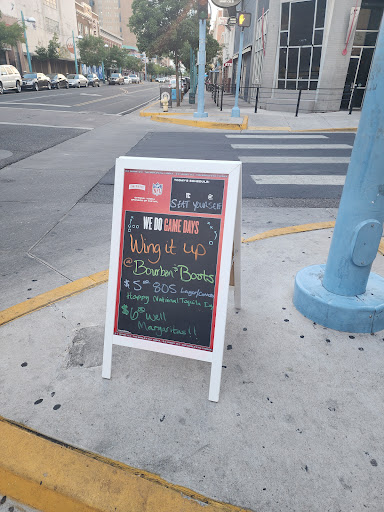 NFL
TODAY'S SCHEDULE
SEAT YOURSELF
WE DO GAME DAYS
Wing it up
@ Bourbon & Boots
$5 805
Happy National Tequila
$6 Well
Margaritas!!